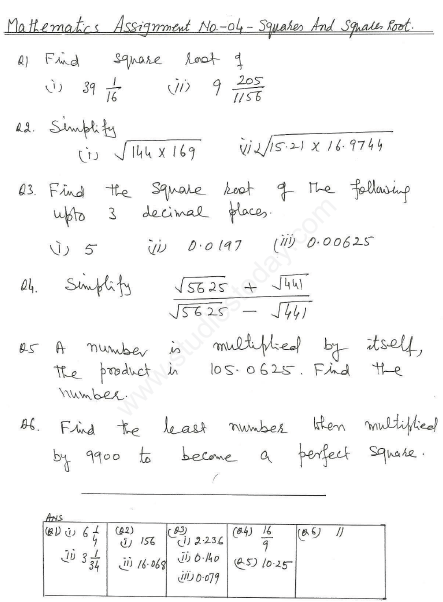 Mathematics Assignment No-04 - Squares And Squares Root.
Q1 Find square root of
(i) 39 1/16 (ii) 9 205/1156
Q2. Simplify
(i) √144 × 169 (ii) √15.21 × 16.9744
Q3. Find the square root of the following
upto 3 decimal places.
(i) 5 (ii) 0.0197 (iii) 0.00625
Q4. Simplify (√5625 + √441) / (√5625 − √441)
Q5 A number is multiplied by itself,
the product is 105.0625. Find the
number.
Q6. Find the least number when multiplied
by 9900 to become a perfect square.
ANS
(Q1) (i) 6 1/4 (ii) 3 1/34
(Q2) (i) 156 (ii) 16.068
(Q3) (i) 2.236 (ii) 0.140 (iii) 0.079
(Q4) 16/9
(Q5) 10.25
(Q6) 11
www.studiestoday.com